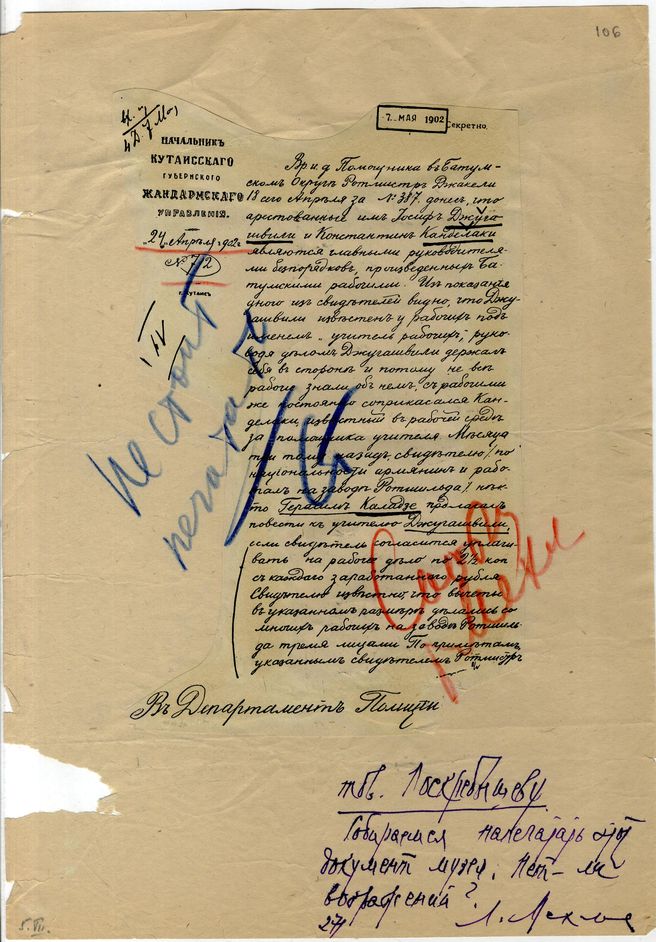 106
7 МАЯ 1902
Секретно.
НАЧАЛЬНИКЪ
КУТАИССКАГО
ГУБЕРНСКАГО
ЖАНДАРМСКАГО
УПРАВЛЕНІЯ.
24 Апрѣля 1902 г.
№ 72
г. Кутаисъ
Вр. и. д. Помощника въ Батум-
скомъ Округѣ Ротмистръ Джакели
18 сего Апрѣля за № 387, донесъ, что
арестованные имъ Іосифъ Джуга-
швили и Константинъ Канделаки
являются главными руководителя-
ми безпорядковъ, произведенныхъ Ба-
тумскими рабочими. Изъ показанія
одного изъ свидѣтелей видно, что Джу-
гашвили извѣстенъ у рабочихъ подъ
именемъ „учитель рабочихъ“, руко-
водя дѣломъ Джугашвили держалъ
себя въ сторонѣ и потому не всѣ
рабочіе знали объ немъ, съ рабочими
же постоянно соприкасался Кан-
делаки, извѣстный въ рабочей средѣ
за помощника учителя. Мѣсяца
три тому назадъ, свидѣтелю /по
національности армянинъ и рабо-
талъ на заводѣ Ротшильда/ нѣк-
то Герасимъ Каладзе предлагалъ
повести къ учителю Джугашвили,
если свидѣтель согласится уплачи-
вать на рабочее дѣло по 2½ коп
съ каждаго заработаннаго рубля.
Свидѣтелю извѣстно, что вычеты
въ указанномъ размѣрѣ дѣлались со
многихъ рабочихъ на заводѣ Ротшиль-
да тремя лицами. По примѣтамъ,
указаннымъ свидѣтелемъ Ротмистръ
Въ Департаментъ Полиціи
Не стоит
печатать
тов. Поскребышеву
Собираемся напечатать этот
документ музея. Нет-ли
возражений?
Л. Мехлис
5.VII.